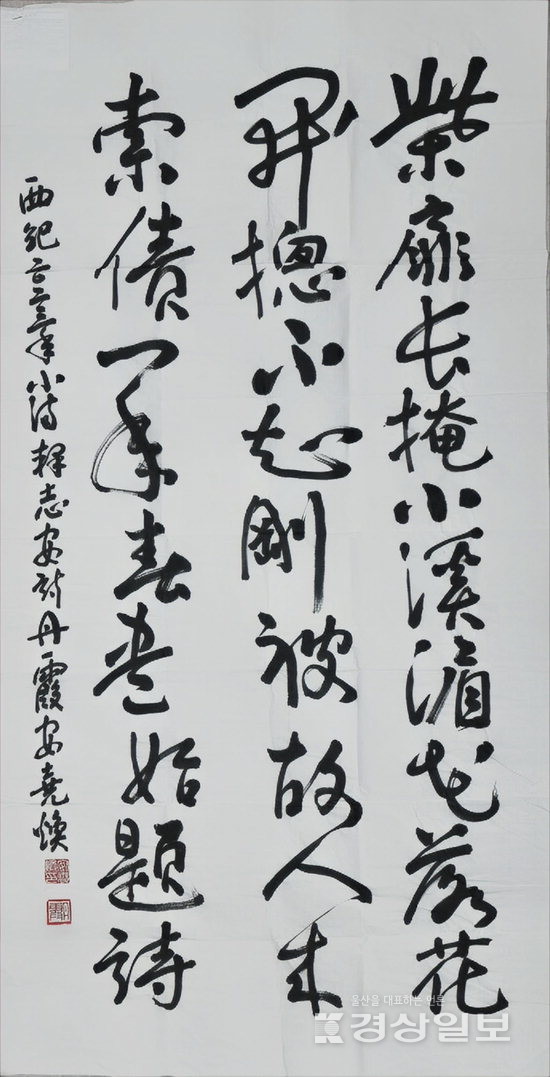 柴扉長掩小溪湄花落花
開摠不知剛被故人來
索債一年春盡始題詩
西紀二〇二三年小滿釋志安詩丹霞安堯煥
울산을 대표하는 언론
경상일보